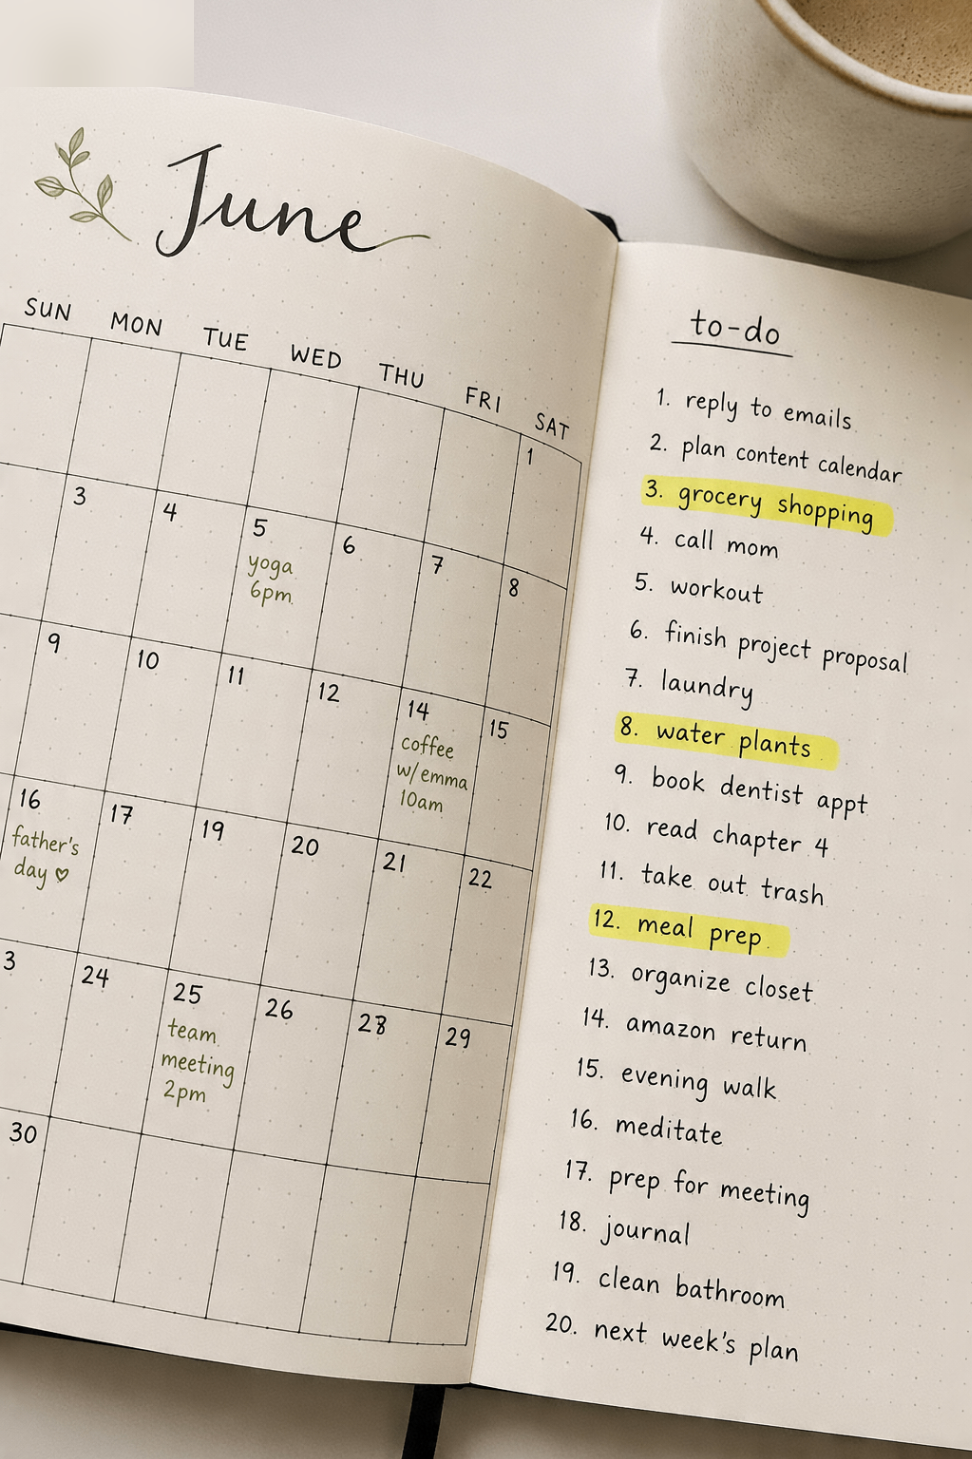 June
SUN MON TUE WED THU FRI SAT
1
3 4 5 6 7 8
yoga
6pm
9 10 11 12 14 15
coffee
w/emma
10am
16 17 19 20 21 22
father's
day ♡
3 24 25 26 28 29
team
meeting
2pm
30
to-do
1. reply to emails
2. plan content calendar
3. grocery shopping
4. call mom
5. workout
6. finish project proposal
7. laundry
8. water plants
9. book dentist appt
10. read chapter 4
11. take out trash
12. meal prep
13. organize closet
14. amazon return
15. evening walk
16. meditate
17. prep for meeting
18. journal
19. clean bathroom
20. next week's plan